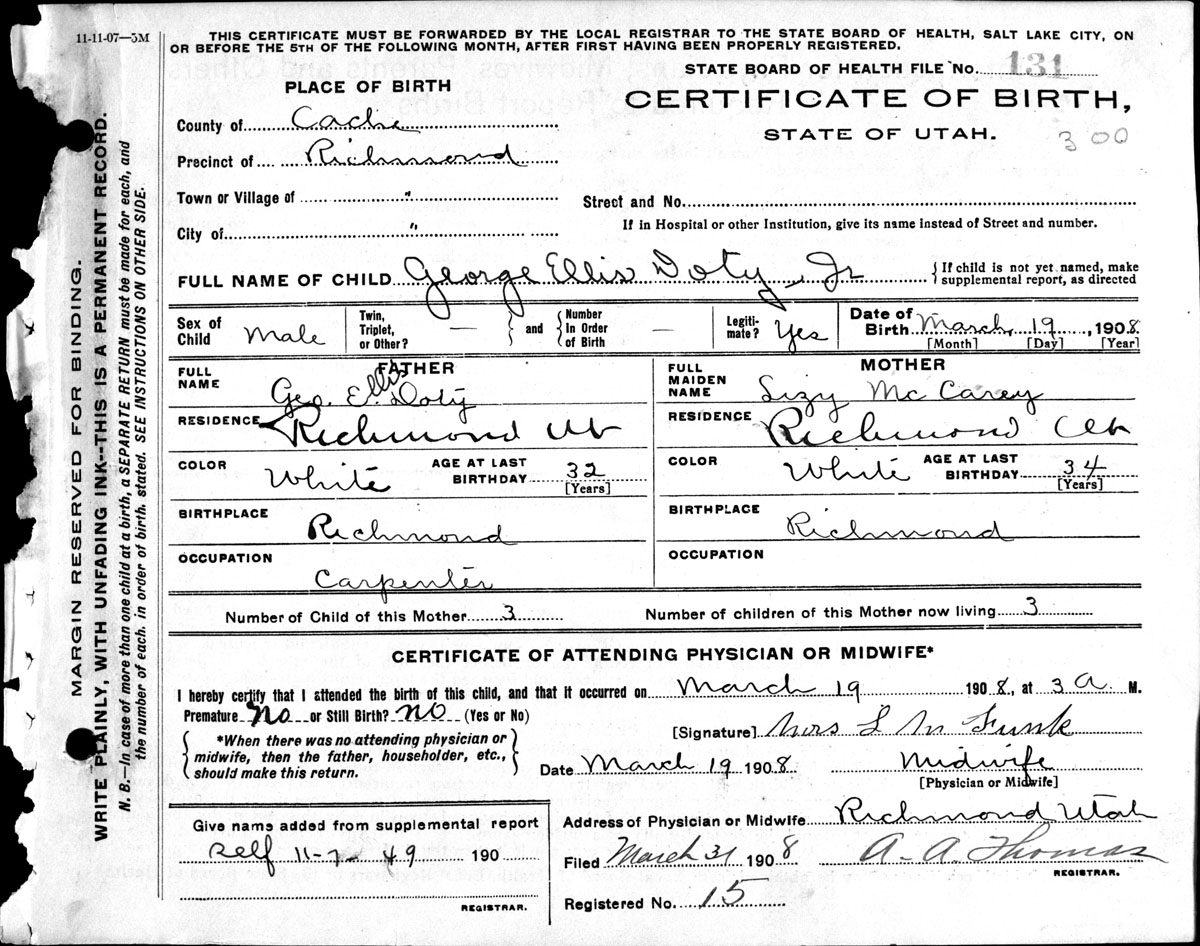 11-11-07—5M
THIS CERTIFICATE MUST BE FORWARDED BY THE LOCAL REGISTRAR TO THE STATE BOARD OF HEALTH, SALT LAKE CITY, ON
OR BEFORE THE 5TH OF THE FOLLOWING MONTH, AFTER FIRST HAVING BEEN PROPERLY REGISTERED.
STATE BOARD OF HEALTH FILE No. 131
PLACE OF BIRTH
CERTIFICATE OF BIRTH,
STATE OF UTAH.
300
County of Cache
Precinct of Richmond
Town or Village of "
City of "
Street and No.
If in Hospital or other Institution, give its name instead of Street and number.
FULL NAME OF CHILD George Ellis Doty, Jr
{ If child is not yet named, make
supplemental report, as directed
Sex of Child Male
Twin, Triplet, or Other? — } and { Number In Order of Birth —
Legiti-mate? Yes
Date of Birth March 19, 1908
[Month] [Day] [Year]
FATHER
FULL NAME Geo. E. Ellis Doty
RESIDENCE Richmond Ut
COLOR White AGE AT LAST BIRTHDAY 32 [Years]
BIRTHPLACE Richmond
OCCUPATION Carpenter
MOTHER
FULL MAIDEN NAME Lizy McCarey
RESIDENCE Richmond Ut
COLOR White AGE AT LAST BIRTHDAY 34 [Years]
BIRTHPLACE Richmond
OCCUPATION
Number of Child of this Mother 3 Number of children of this Mother now living 3
CERTIFICATE OF ATTENDING PHYSICIAN OR MIDWIFE*
I hereby certify that I attended the birth of this child, and that it occurred on March 19 1908, at 3 a M.
Premature No or Still Birth? No (Yes or No)
{ *When there was no attending physician or
midwife, then the father, householder, etc.,
should make this return. }
[Signature] Mrs L M Funk
Date March 19 1908 Midwife
[Physician or Midwife]
Give name added from supplemental report
Self 11-7-49 190
REGISTRAR.
Address of Physician or Midwife Richmond Utah
Filed March 31 1908 A. A. Thomas
REGISTRAR.
Registered No. 15
MARGIN RESERVED FOR BINDING.
WRITE PLAINLY, WITH UNFADING INK--THIS IS A PERMANENT RECORD.
N. B.—In case of more than one child at a birth, a SEPARATE RETURN must be made for each, and
the number of each, in order of birth, stated. SEE INSTRUCTIONS ON OTHER SIDE.